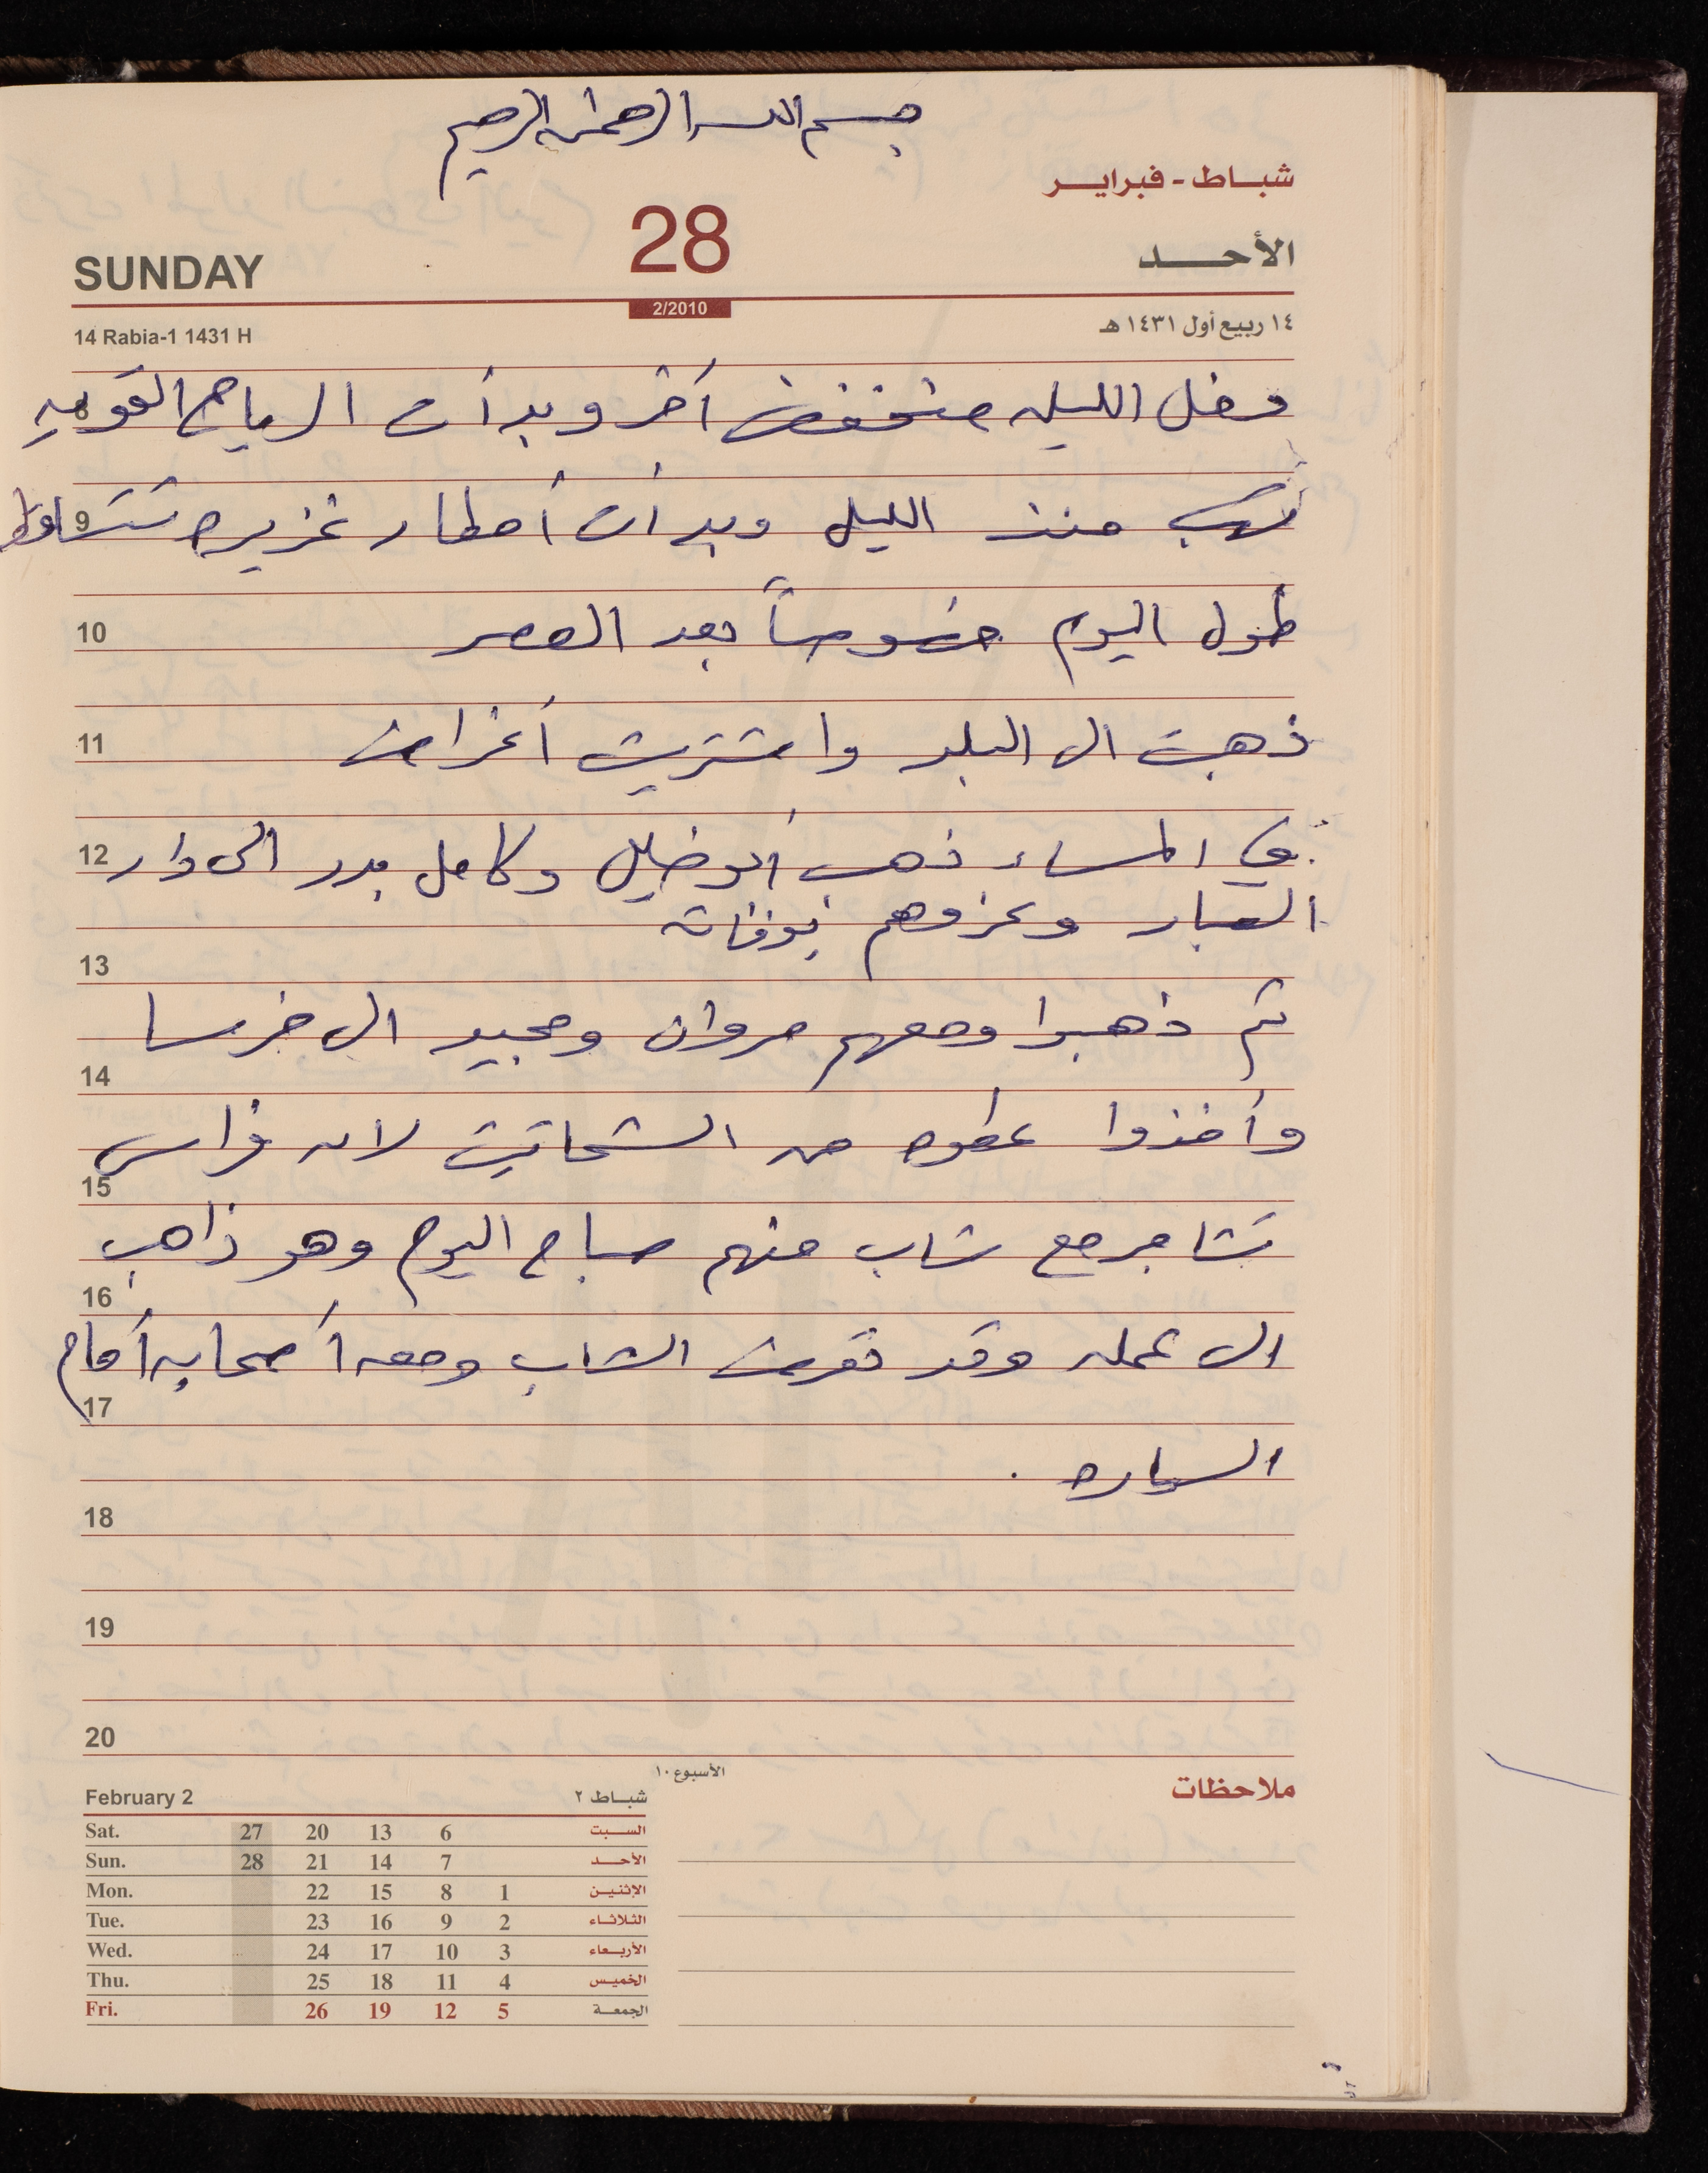 بسم الله الرحمن الرحيم
شباط - فبراير
28
SUNDAY
الأحد
2/2010
14 Rabia-1 1431 H
١٤ ربيع أول ١٤٣١ هـ
دخل الليله منخفض آخر وبدأت الرياح القويه
9 تهب منذ الليل وبدأت أمطار غزيره تتساقط
10 طول اليوم خصوصاً بعد العصر
11 ذهبت الى البلد واشتريت أغراض
12 في المساء ذهب أبو خليل وكامل بدر الى دار
العبار وعزوهم بوفاته
13
ثم ذهبوا ومعهم مروان ومجيد الى خرسا
14
وأخذوا عطوه من الشحاتيت لان فراس
15
تشاجر مع شاب منهم صباح اليوم وهو ذاهب
16
الى عمله وقد تعرض الشاب ومعه أصحابه أمام
17
السياره .
18
19
20
February 2
شباط ٢
الأسبوع ١٠
ملاحظات
Sat. 27 20 13 6 السبت
Sun. 28 21 14 7 الأحد
Mon. 22 15 8 1 الإثنين
Tue. 23 16 9 2 الثلاثاء
Wed. 24 17 10 3 الأربعاء
Thu. 25 18 11 4 الخميس
Fri. 26 19 12 5 الجمعة